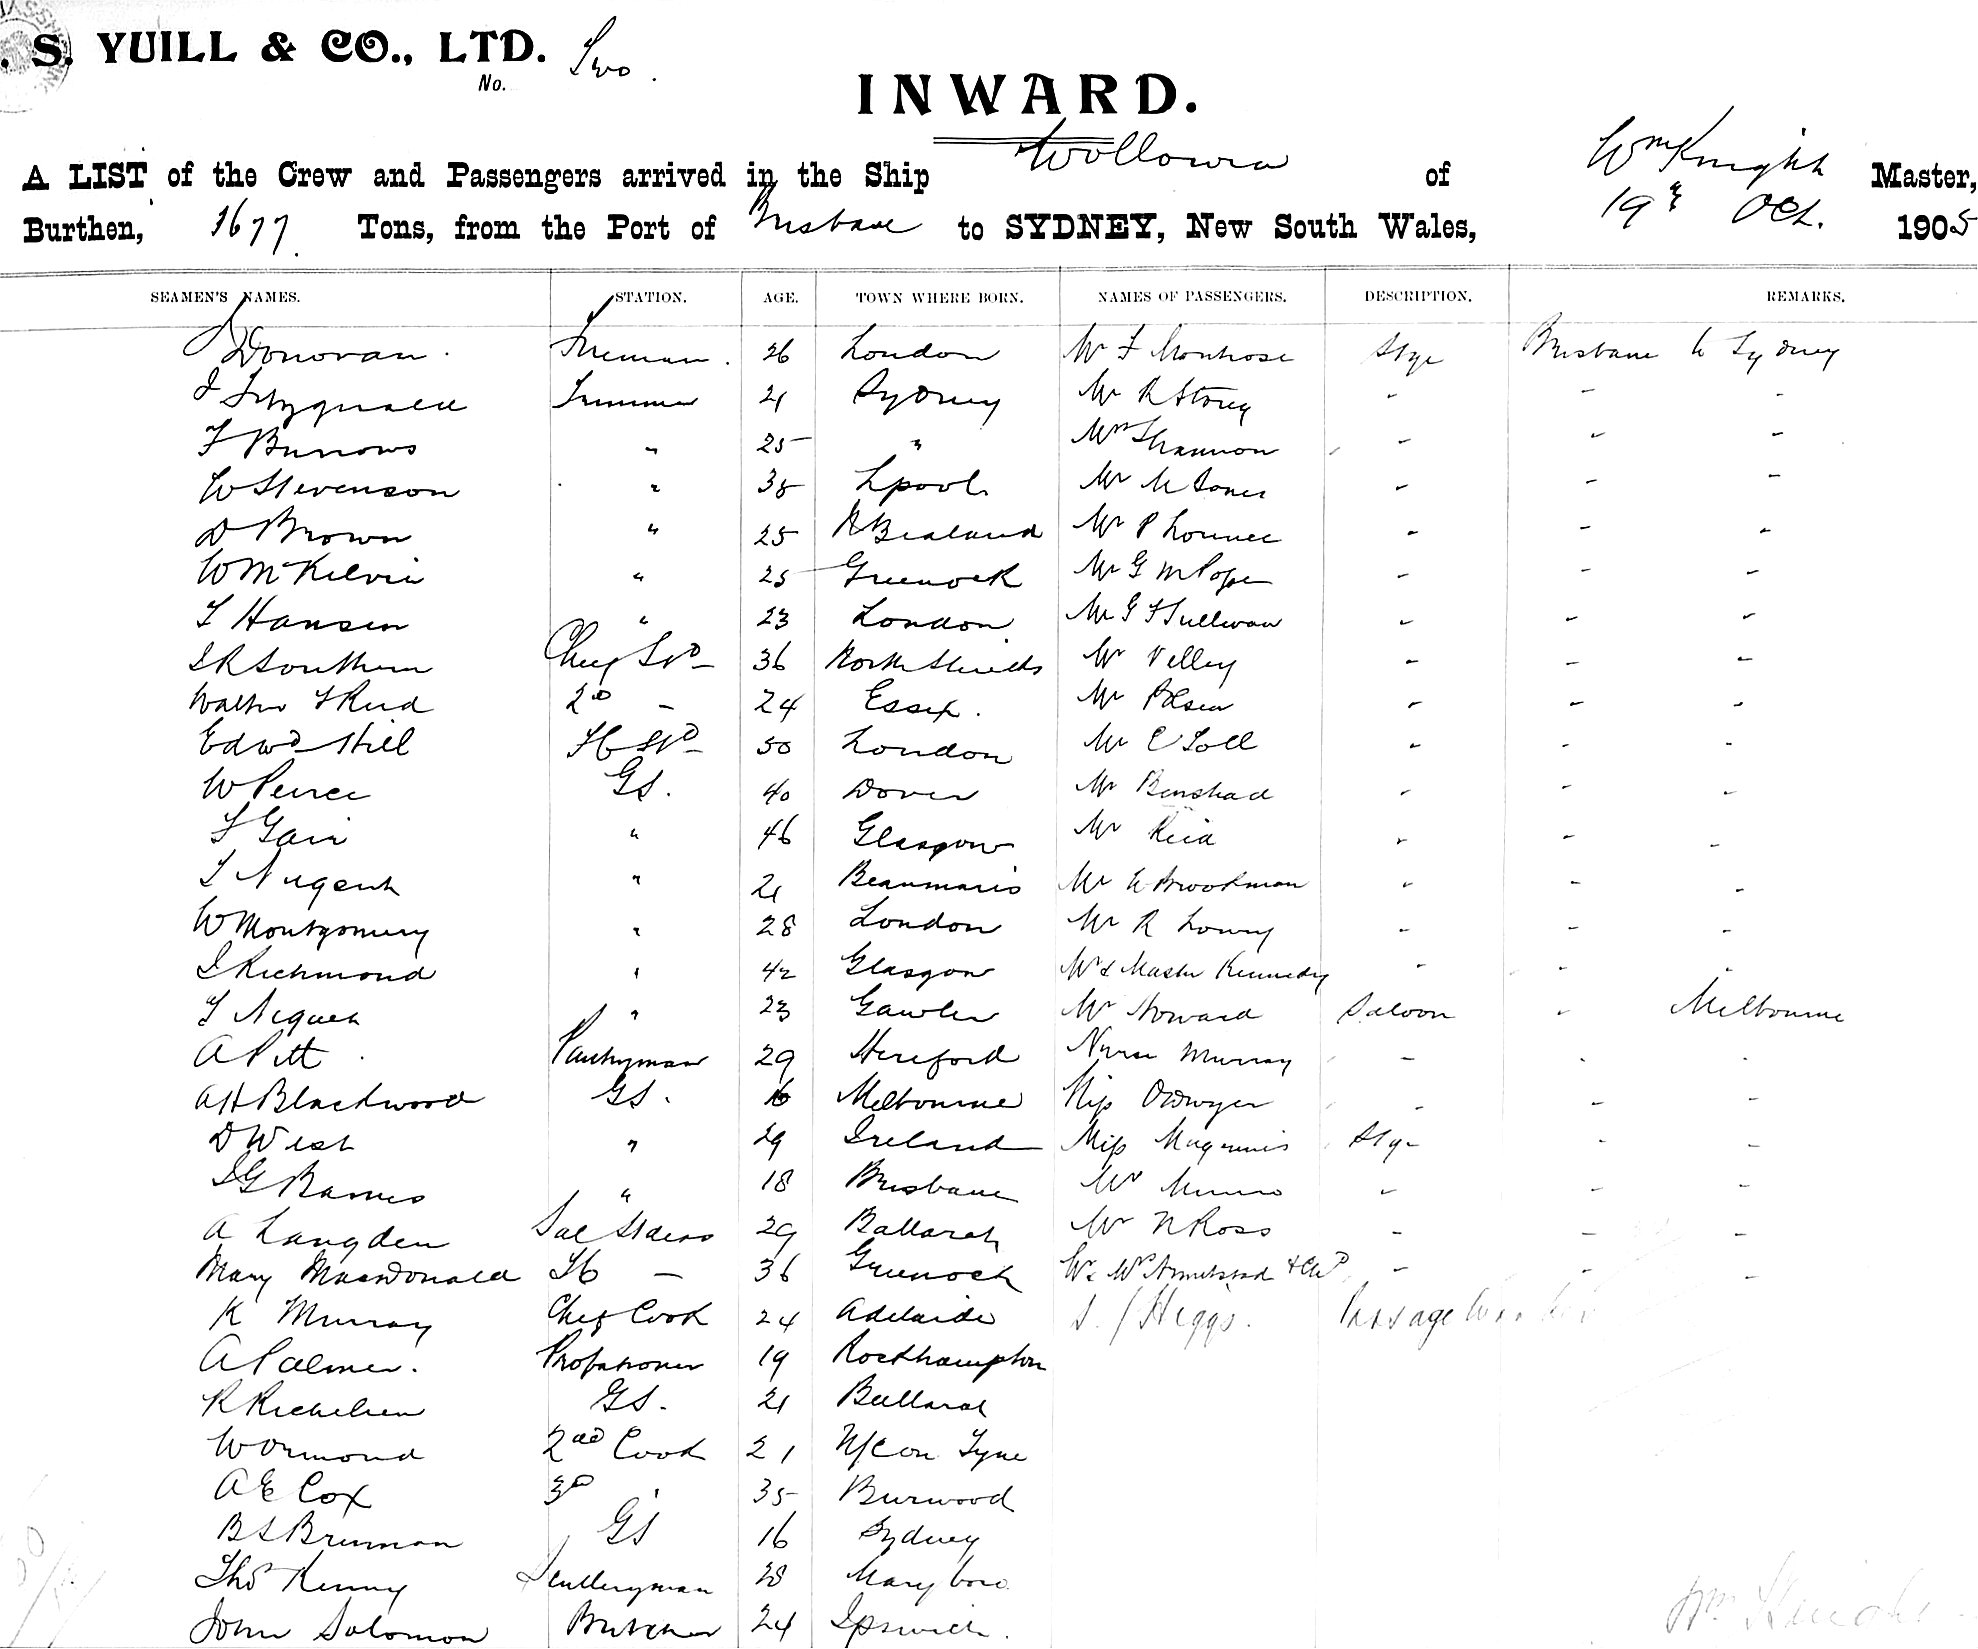 . S. YUILL & CO., LTD.
No. Two.
INWARD.
A LIST of the Crew and Passengers arrived in the Ship Wollowra of Wm Knight Master,
Burthen, 1677 Tons, from the Port of Brisbane to SYDNEY, New South Wales, 19th Oct. 1905
SEAMEN'S NAMES. STATION. AGE. TOWN WHERE BORN. NAMES OF PASSENGERS. DESCRIPTION. REMARKS.
J Donovan. Fireman. 26 London Mr F Montrose Stge Brisbane to Sydney
J Fitzgerald Trimmer 21 Sydney Mr R Storey " " "
F Burrows " 25 " Mr Shannon " " "
W Stevenson " 38 Lpool Mr M Jones " " "
D Brown " 25 N Zealand Mr P " " "
W McKelvie " 25 Greenock Mr G M Pope " " "
T Hansen " 23 London Mr G F Sullivan " " "
J R Southern Chief Std 36 North Shields Mr Velley " " "
Walter F Reid 2nd - 24 Essex. Mr Olsen " " "
Edwd Hill F C Std 50 London Mr C Toll " " "
W Peirce GS. 40 Dover Mr Benstead " " "
F Gair " 46 Glasgow Mr Reid " " "
T Nugent " 21 Beaumaris Mr W Brookman " " "
W Montgomery " 28 London Mr R Lowry " " "
J Richmond " 42 Glasgow Mr & Master Kennedy " " "
T " 23 Gawler Mr Howard Saloon " Melbourne
A Pitt Pantryman 29 Hereford Nurse Murray " " "
A H Blackwood GS. 16 Melbourne Miss Odwyer " " "
D West " 29 Ireland Miss Maginnis Stge " "
J G Barnes " 18 Brisbane Mr Munro " " "
A Langden Sal Stdess 29 Ballarat Mr N Ross " " "
Mary MacDonald FC - 36 Greenock Mr & Mrs + Chd " " "
K Murray Chef Cook 24 Adelaide Higgs. Passage
A Palmer. Probationer 19 Rockhampton
R Richelieu GS. 21 Ballarat
W Ormond 2nd Cook 21 N/C on Tyne
A E Cox 3rd " 35 Burwood
B S Brennan GS 16 Sydney
Thos Kenny Sculleryman 28 Maryboro
John Solomon Butcher 24 Ipswich.
Wm Knight